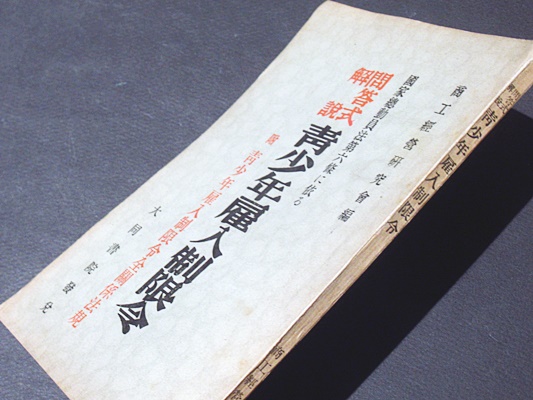 商工經營研究會編
國家總動員法第六條に依る
問答式
解説
靑少年雇入制限令
附 靑少年雇入制限令全關係法規
大同書院發兌
靑少年雇入制限令
商工經營